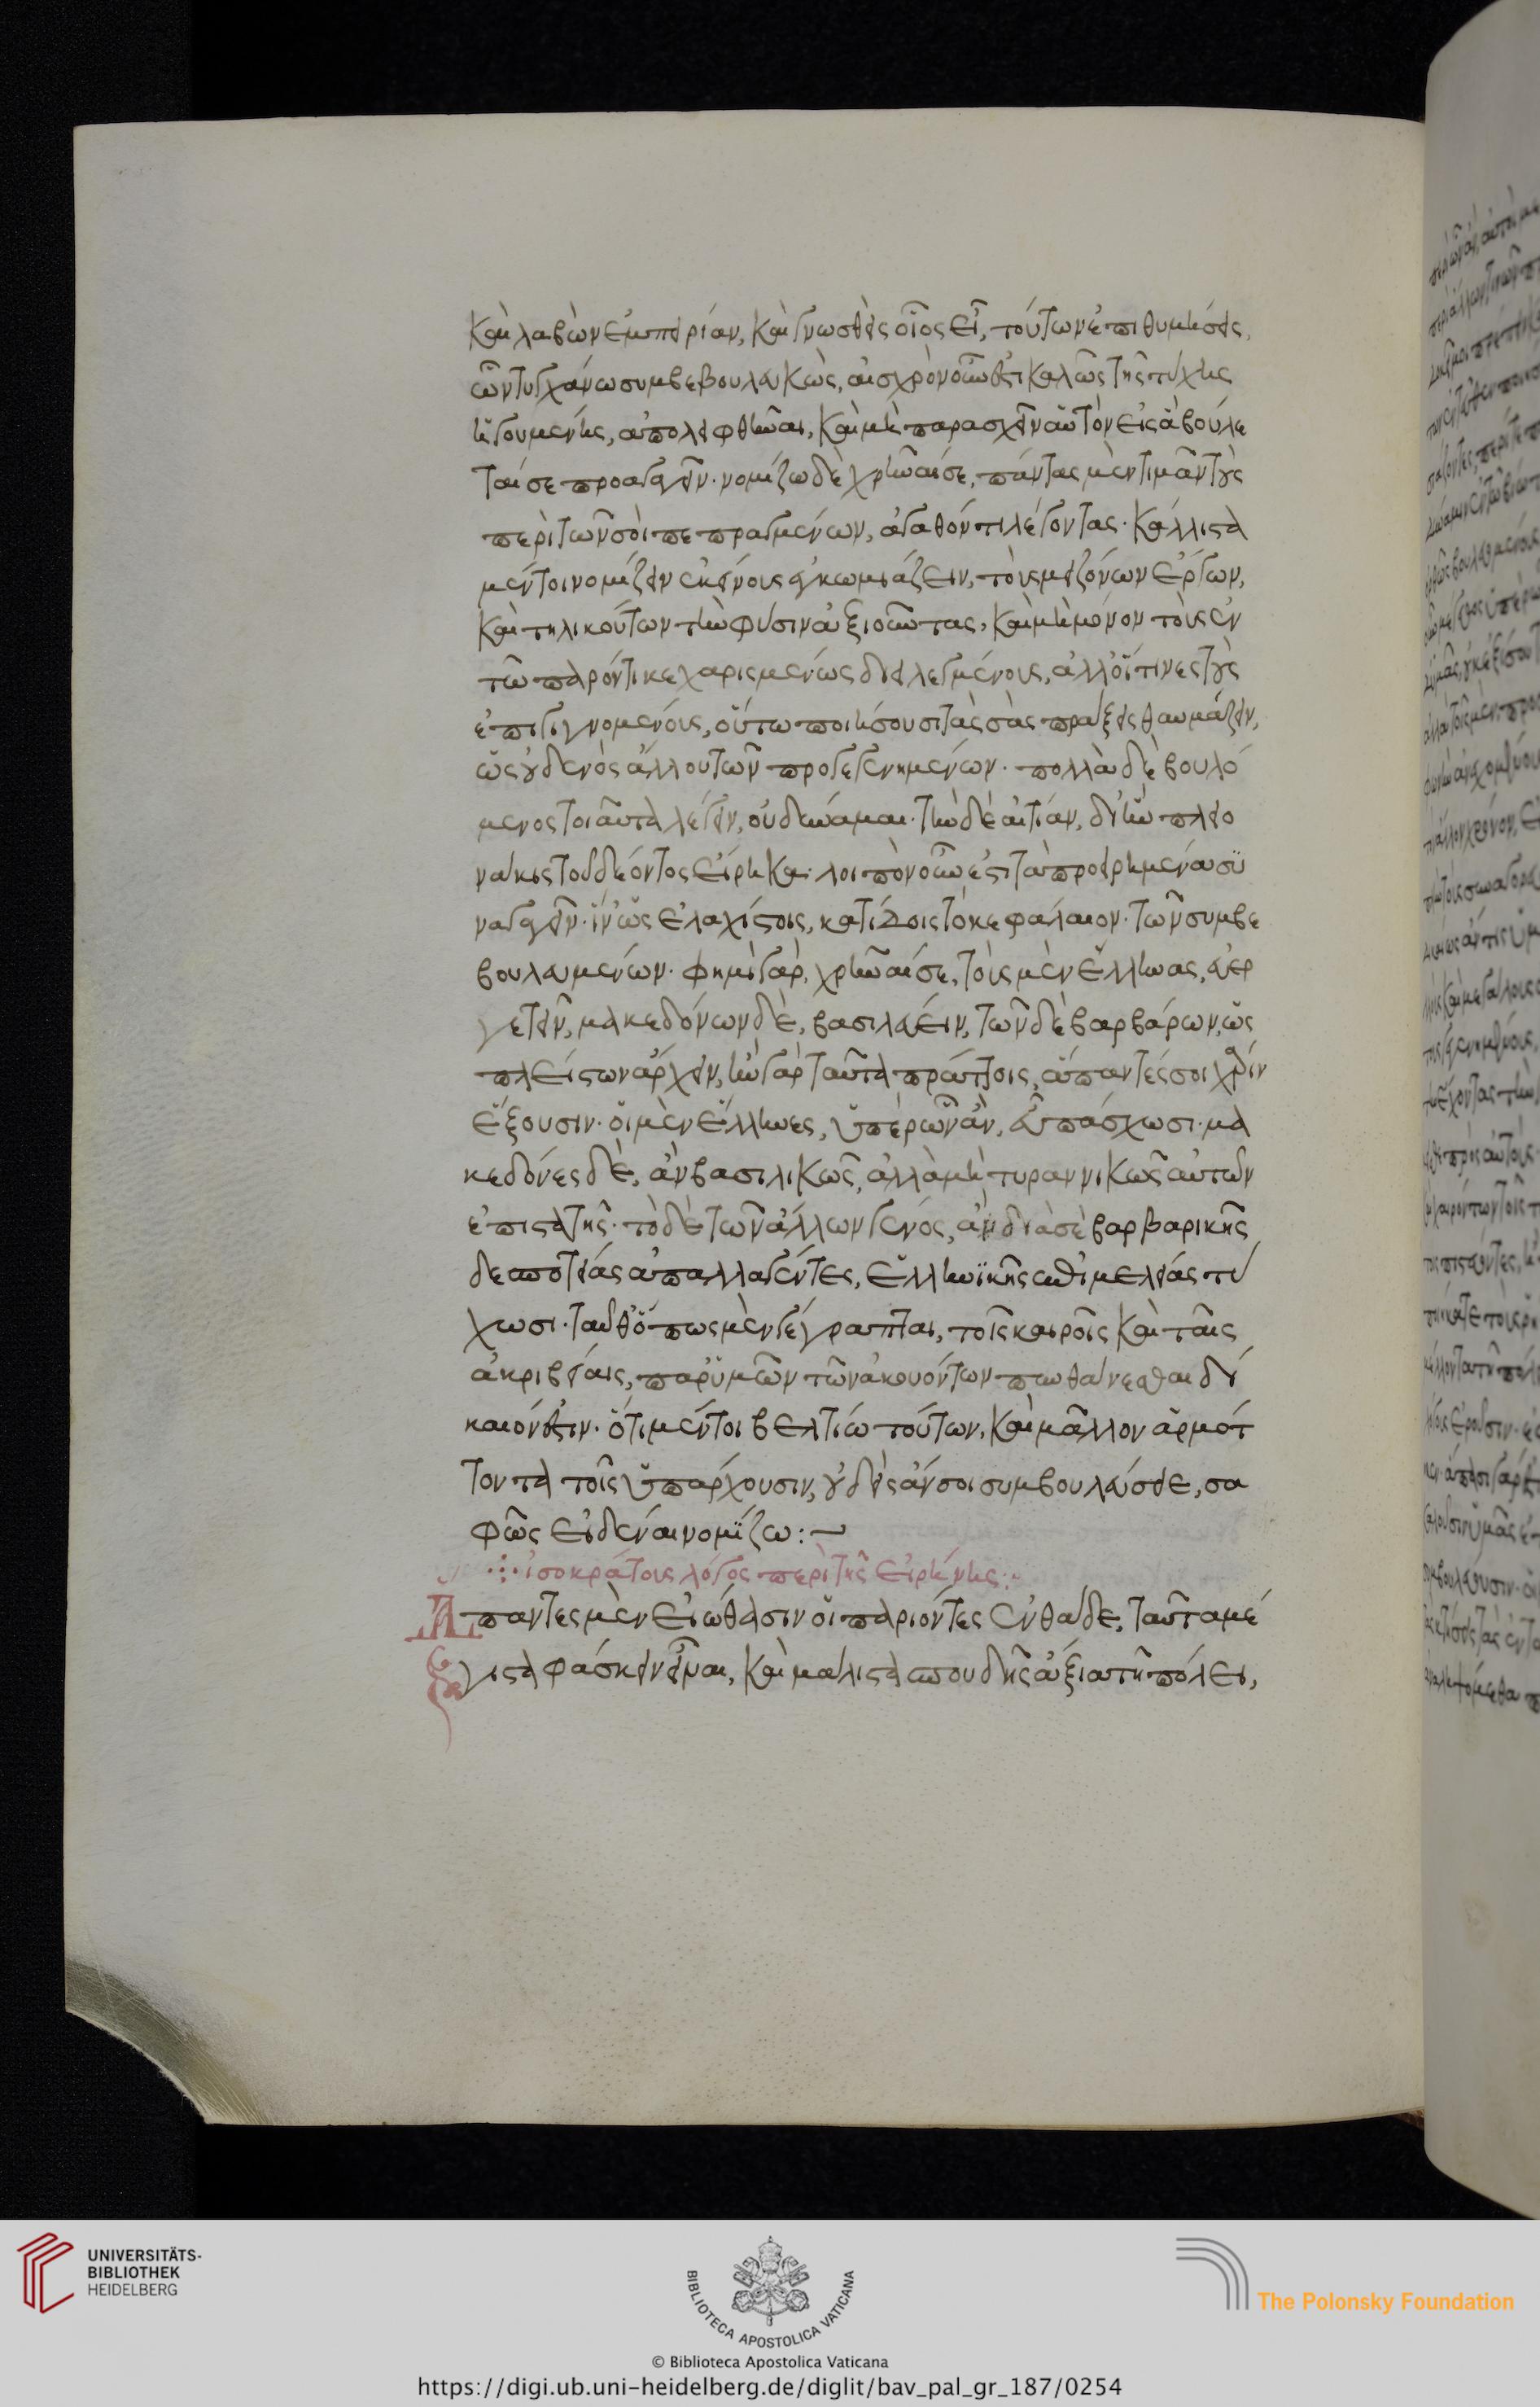 καὶ λαβὼν ἐμπειρίαν, καὶ γνωσθεὶς οἷος εἶ, τούτων ἐπιθυμήσεις,
ὧν τυγχάνω συμβεβουλευκώς, αἰσχρὸν οὖν ἐστι καλῶς τῆς τύχης
ἡγουμένης, ἀπολειφθῆναι, καὶ μὴ παρασχεῖν αὑτὸν εἰς ἃ βούλε
ταί σε προαγαγεῖν. νομίζω δὲ χρῆναί σε, πάντας μὲν τιμᾶν τοὺς
περὶ τῶν σοὶ πεπραγμένων, ἀγαθόν τι λέγοντας. κάλλιστα
μέντοι νομίζειν ἐκείνους ἐγκωμιάζειν, τοὺς μειζόνων ἔργων,
καὶ τηλικούτων τὴν φύσιν ἀξιοῦντας, καὶ μὴ μόνον τοὺς ἐν
τῶ παρόντι κεχαρισμένως διειλεγμένους, ἀλλ' οἵτινες τοὺς
ἐπιγιγνομένους, οὕτω ποιήσουσι τὰς σὰς πράξεις θαυμάζειν,
ὡς οὐδενὸς ἄλλου τῶν προγεγενημένων. πολλὰ δὲ βουλό
μενος τοιαῦτα λέγειν, οὐ δύναμαι. τὴν δὲ αἰτίαν, δι' ἣν πλεο
νάκις τοῦ δέοντος εἴρηκα. λοιπὸν οὖν ἐστι τὰ προειρημένα συ
ναγαγεῖν. ἵν' ὡς ἐλαχίστοις, κατίδοις τὸ κεφάλαιον. τῶν συμβε
βουλευμένων. φημὶ γὰρ, χρῆναί σε, τοὺς μὲν ἕλληνας, εὐερ
γετεῖν, μακεδόνων δὲ, βασιλεύειν, τῶν δὲ βαρβάρων, ὡς
πλείστων ἄρχειν, ἢν γὰρ ταῦτα πράττοις, ἅπαντές σοι χάριν
ἕξουσιν. οἱ μὲν ἕλληνες, ὑπὲρ ὧν ἂν, εὖ πάσχωσι. μα
κεδόνες δὲ, ἂν βασιλικῶς, ἀλλὰ μὴ τυραννικῶς αὐτῶν
ἐπιστατῆς. τὸ δὲ τῶν ἄλλων γένος, ἂν διὰ σὲ βαρβαρικῆς
δεσποτείας ἀπαλλαγέντες, ἑλληνικῆς ἐπιμελείας τύ
χωσι. ταῦθ' ὅπως μὲν γέγραπται, τοῖς καιροῖς καὶ ταῖς
ἀκριβείαις, παρ' ὑμῶν τῶν ἀκουόντων πυνθάνεσθαι δί
καιόν ἐστιν. ὅτι μέντοι βελτίω τούτων, καὶ μᾶλλον ἁρμότ
τοντα τοῖς ὑπάρχουσιν, οὐδεὶς ἄν σοι συμβουλεύσειε, σα
φῶς εἰδέναι νομίζω:
ἰσοκράτους λόγος περὶ τῆς εἰρήνης:
Ἅπαντες μὲν εἰώθασιν οἱ παριόντες ἐνθάδε, ταῦτα μέ
γιστα φάσκειν εἶναι, καὶ μάλιστα σπουδῆς ἄξια τῆ πόλει,
UNIVERSITÄTS-
BIBLIOTHEK
HEIDELBERG
BIBLIOTECA APOSTOLICA VATICANA
The Polonsky Foundation
© Biblioteca Apostolica Vaticana
https://digi.ub.uni-heidelberg.de/diglit/bav_pal_gr_187/0254